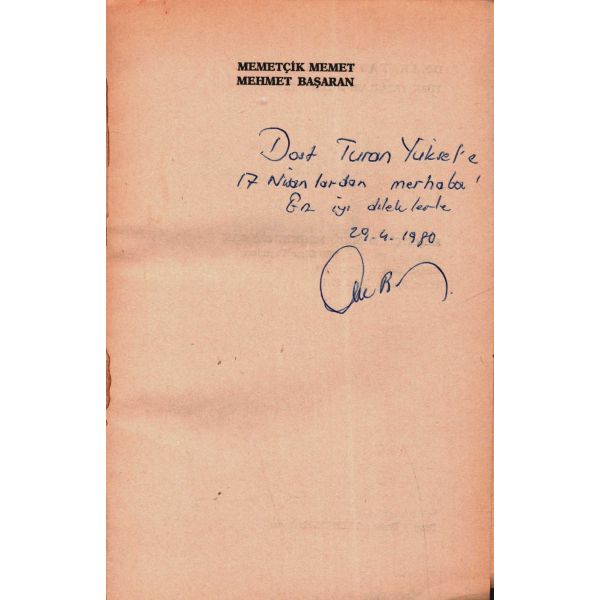 MEMETÇİK MEMET
MEHMET BAŞARAN
Dost Turan Yüksel'e
17 Nisanlardan merhaba!
En iyi dileklerle
29.4.1980